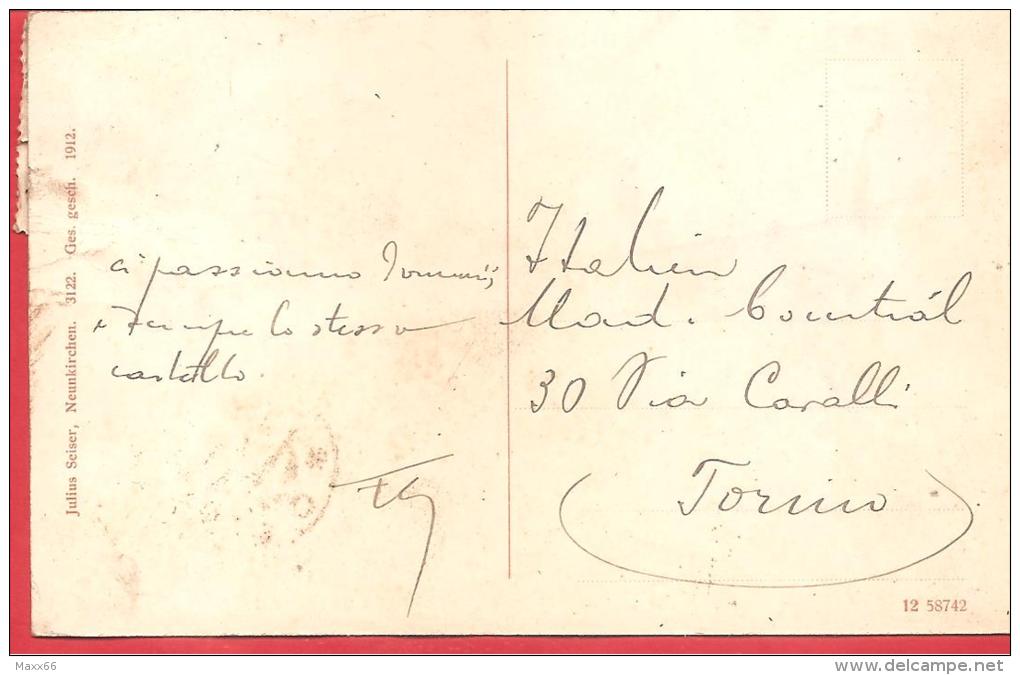 Julius Seiser, Neunkirchen. 3122. Ges. gesch. 1912.
ci passiamo
lo stesso
castello.
Italien
Mad.
30 Via Cavalli
Torino
12 58742
Maxx66
www.delcampe.net